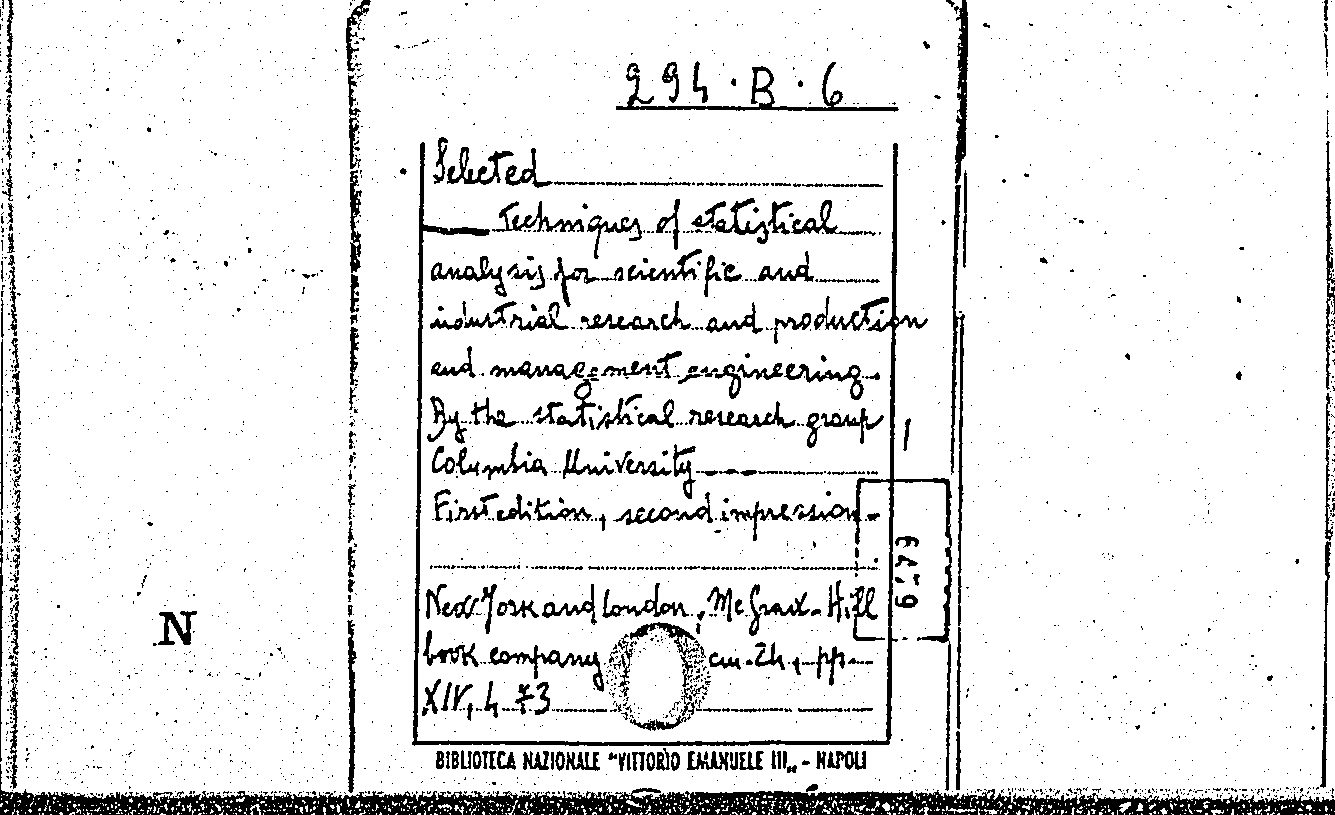 294·B·6
Selected
Techniques of statistical
analysis for scientific and
industrial research and production
and management engineering.
By the statistical research group
Columbia University
First edition, second impression.
New York and London, Mc Graw-Hill
book company cm. 24, pp.
XIV, 473
N
BIBLIOTECA NAZIONALE "VITTORIO EMANUELE III„ - NAPOLI